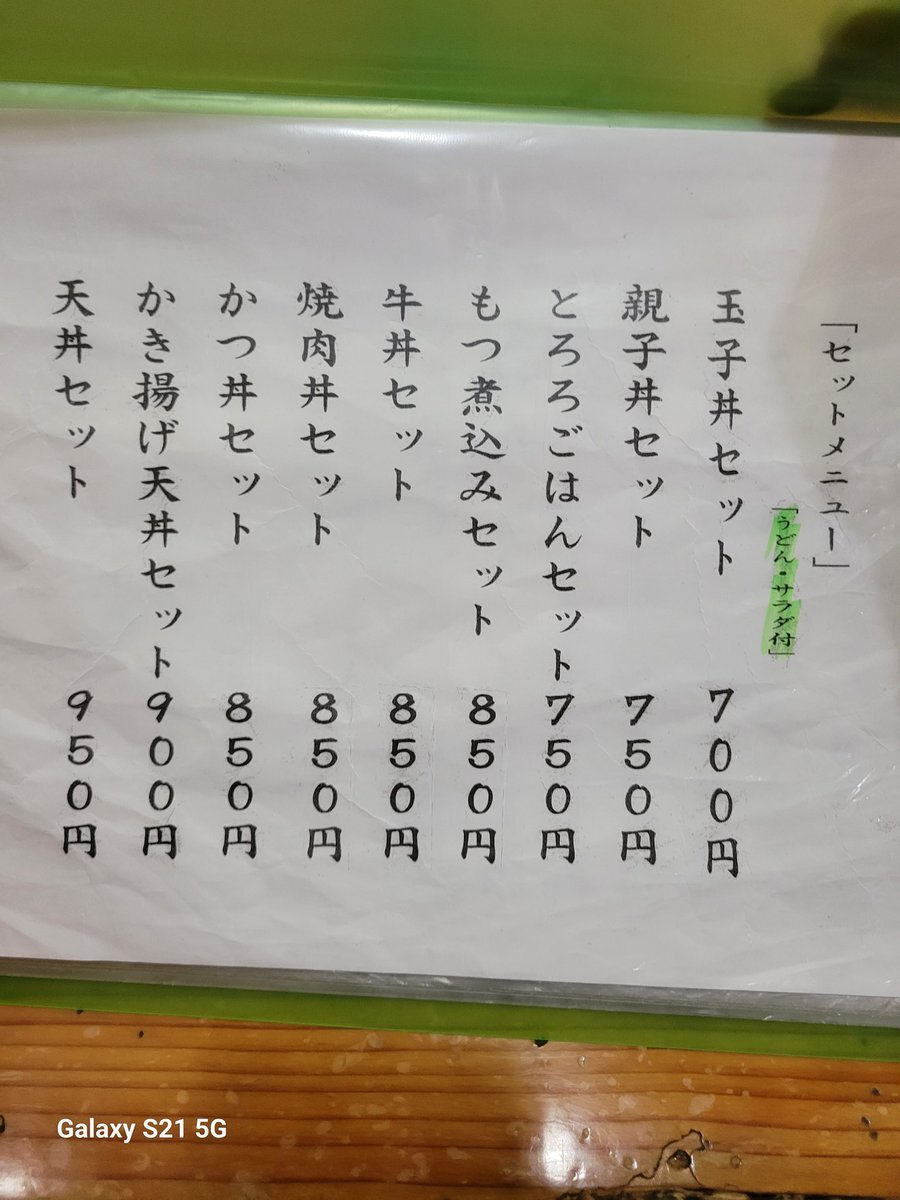 「セットメニュー」
「うどん・サラダ付」
玉子丼セット 700円
親子丼セット 750円
とろろごはんセット 750円
もつ煮込みセット 850円
牛丼セット 850円
焼肉丼セット 850円
かつ丼セット 850円
かき揚げ天丼セット 900円
天丼セット 950円
Galaxy S21 5G